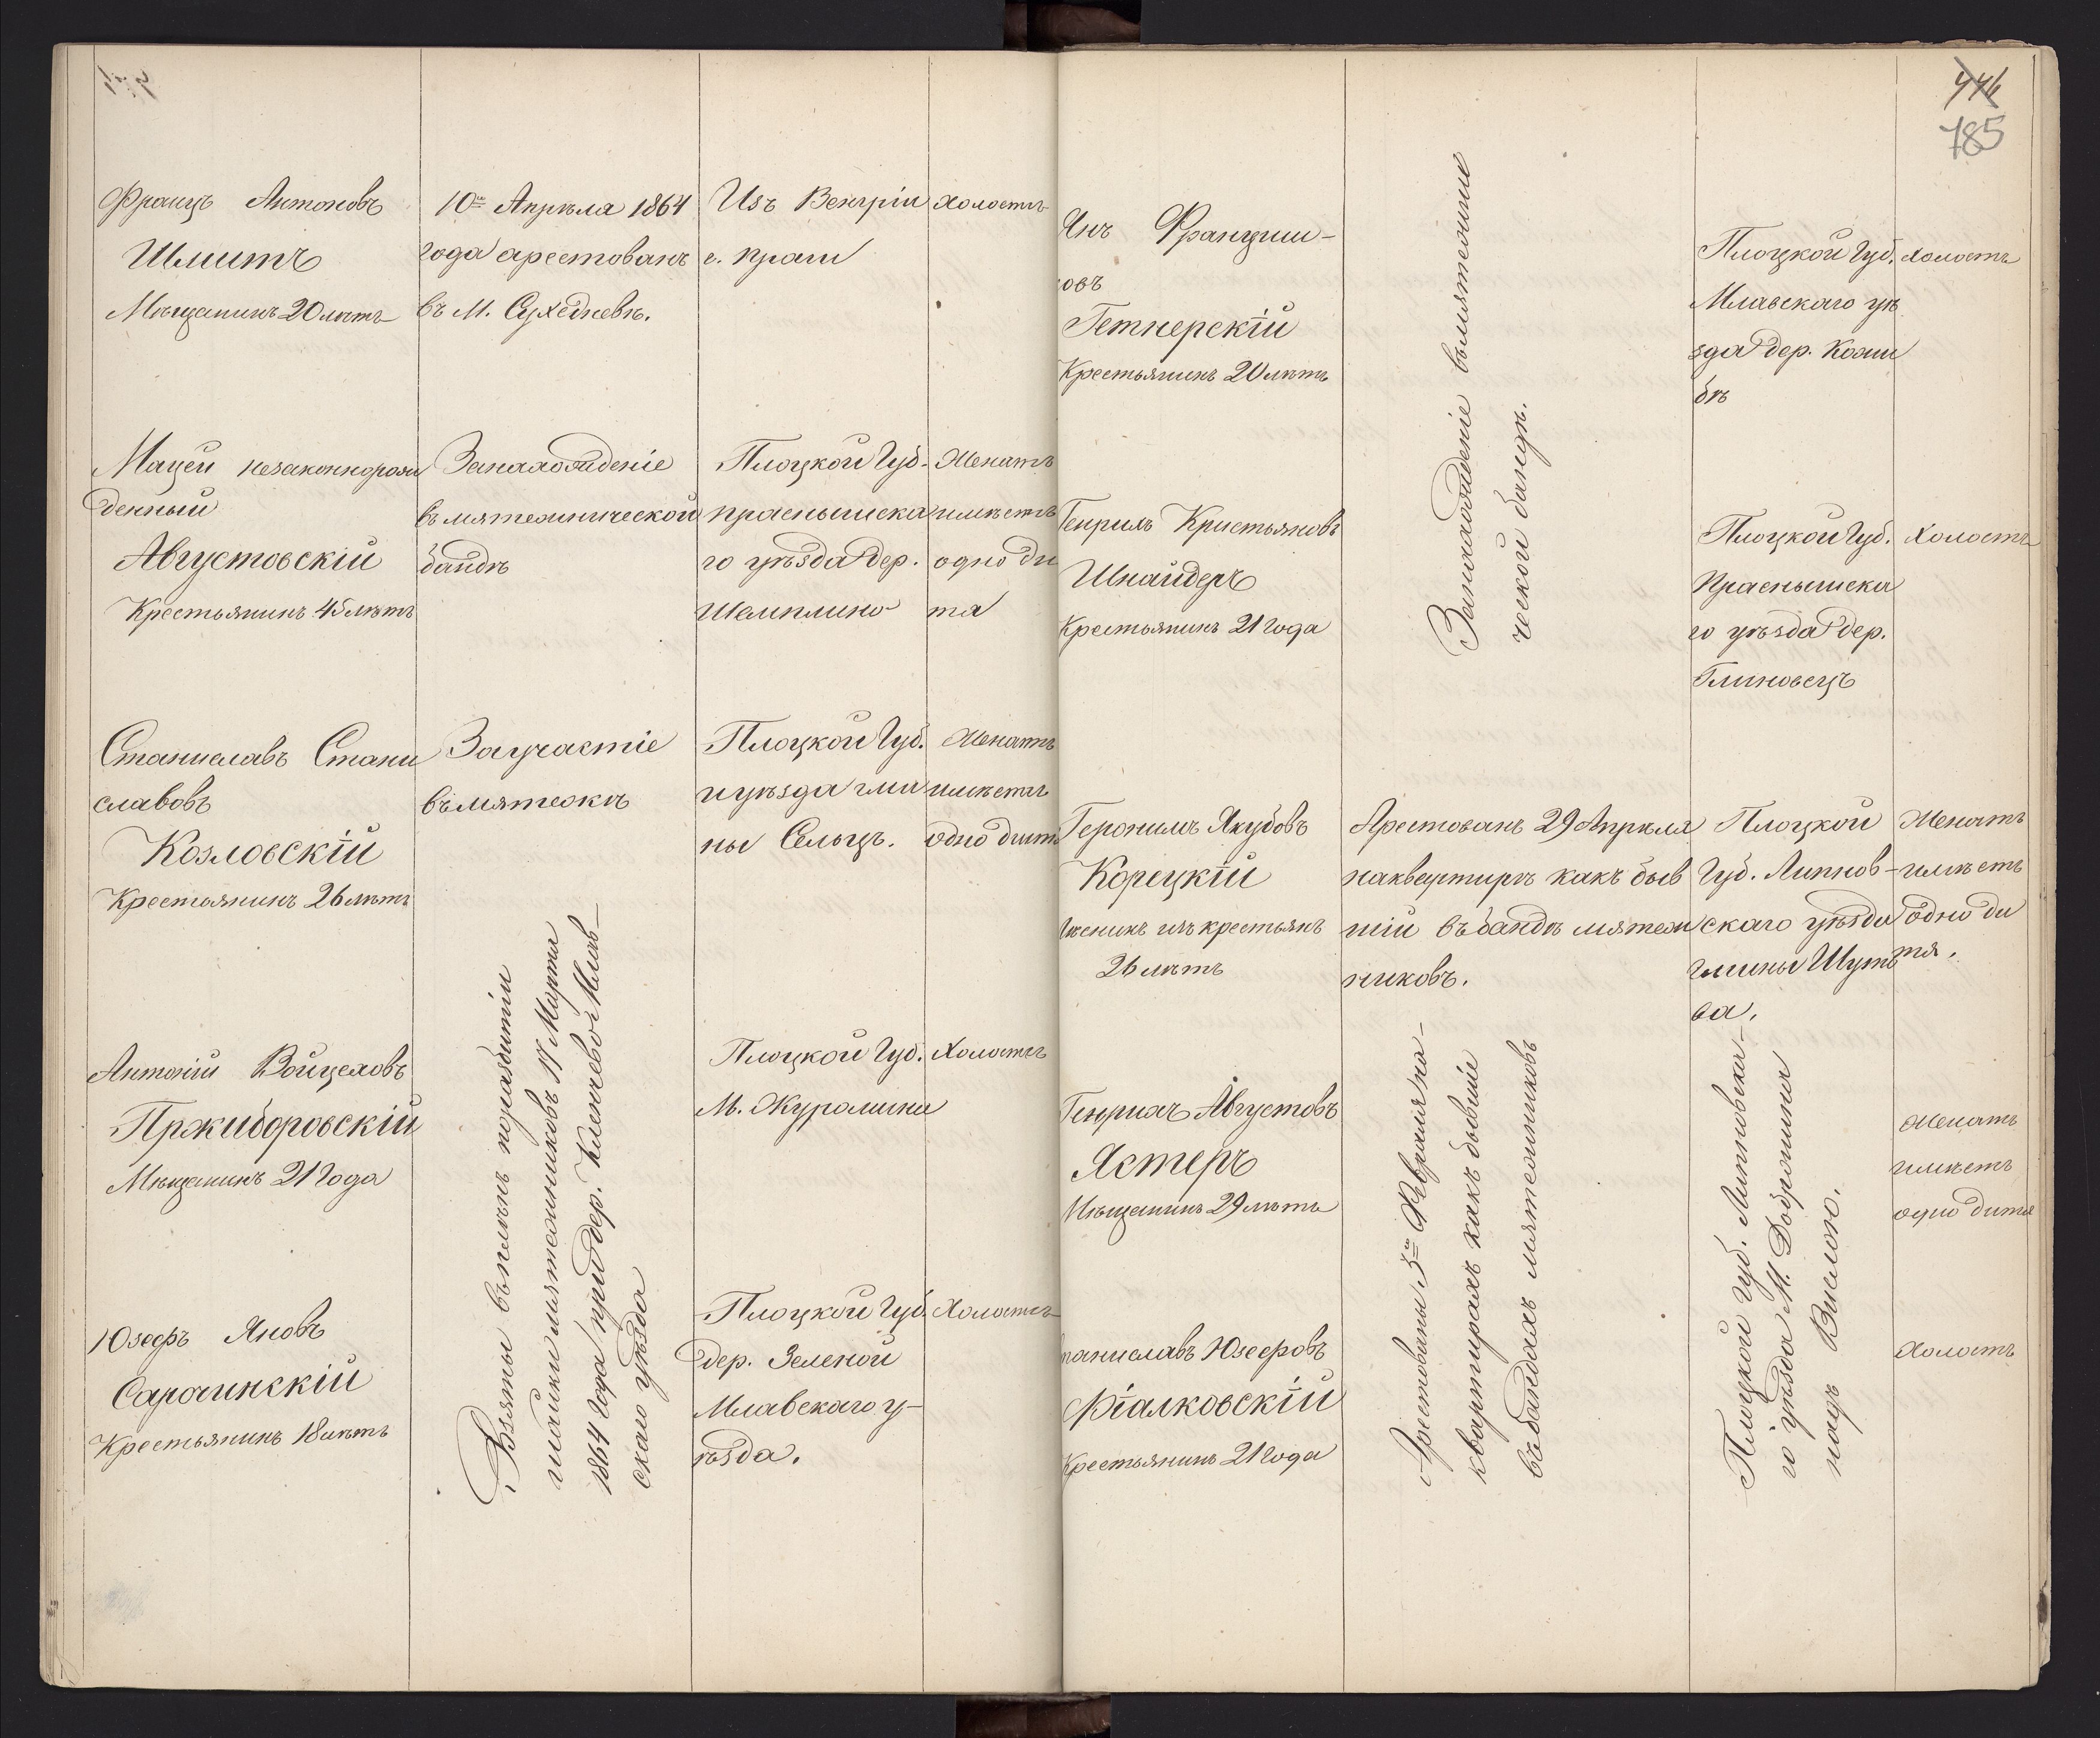 Францъ Антоновъ
Шмитъ
Мѣщанинъ 20 лѣтъ
10го Апрѣля 1864
года арестованъ
въ М. Сухедневѣ.
Изъ Венгріи
г. Праги
Холостъ
Мацей незаконнорож
денный
Августовскій
Крестьянинъ 45 лѣтъ
За нахожденіе
въ мятежнической
бандѣ
Плоцкой Губ.
Праснышска
го уѣзда дер.
Шемплино
Женатъ
имѣетъ
одно ди
тя
Станиславъ Стани
славовъ
Козловскій
Крестьянинъ 26 лѣтъ
За участіе
въ мятежѣ
Плоцкой Губ.
и уѣзда гми
ны Сельцъ.
Женатъ
имѣетъ
одно дитя
Антоній Войцеховъ
Пржиборовскій
Мѣщанинъ 21 года
Взяты въ плѣнъ по разбитіи
шайки мятежниковъ 11 Марта
1864 года при дер. Кленчевой Млав-
скаго уѣзда
Плоцкой Губ.
М. Журомина
Холостъ
Юзефъ Яновъ
Сарочинскій
Крестьянинъ 18 лѣтъ
Плоцкой Губ.
дер. Зеленой
Млавскаго у-
ѣзда.
Холостъ
785
Янъ Францишк-
овъ
Гетнерскій
Крестьянинъ 20 лѣтъ
За нахожденіе въ мятежни
ческой бандѣ.
Плоцкой Губ.
Млавскаго уѣ
зда дер. Кожи
бѣ
Холостъ
Генрихъ Кристьяновъ
Шнайдеръ
Крестьянинъ 21 года
Плоцкой Губ.
Праснышска
го уѣзда дер.
Глиновецъ
Холостъ
Геронимъ Якубовъ
Корецкій
изъ крестьянъ
26 лѣтъ
Арестованъ 29 Апрѣля
на квартирѣ какъ быв
шій въ бандѣ мятеж
никовъ.
Плоцкой
Губ. Липнов-
скаго уѣзда
гмины Шуть
ва.
Женатъ
имѣетъ
одно ди
тя.
Генрихъ Августовъ
Ястеръ
Мѣщанинъ 29 лѣтъ
Арестованы 5го Февраля на
квартирахъ какъ бывшіе
въ бандахъ мятежниковъ
Плоцкой Губ. Липновска-
го уѣзда М. Добржиня
надъ Вислою.
Женатъ
имѣетъ
одно дитя
Станиславъ Юзефовъ
Фіалковскій
Крестьянинъ 21 года
Холостъ